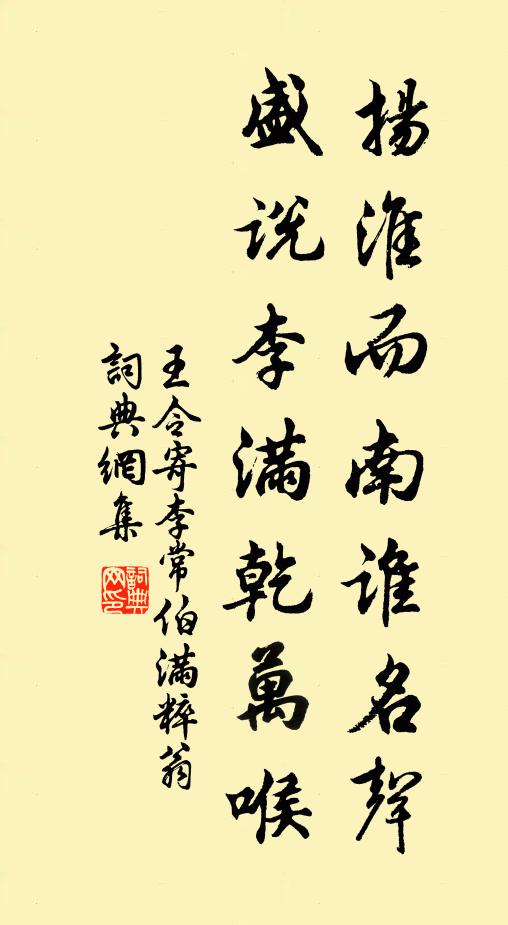 揚淮而南誰名聲
盛説李滿乾萬喉
王令寄李常伯滿粹翁
詞典網集
詞典網印